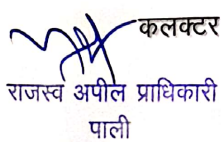 कलक्टर
राजस्व अपील प्राधिकारी
पाली